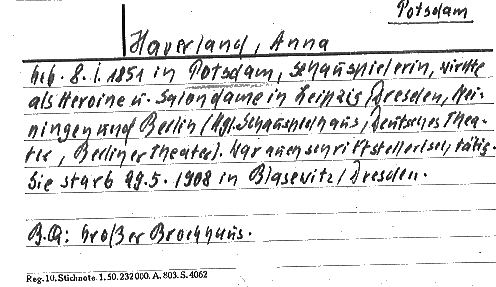 Potsdam
Haverland, Anna
Geb. 8.1.1851 in Potsdam, Schauspielerin, wirkte
als Heroine u. Salondame in Leipzig, Dresden, Mei-
ningen und Berlin (Kgl. Schauspielhaus, Deutsches Thea-
ter, Berliner Theater). War auch schriftstellerisch tätig.
Sie starb 29.5.1908 in Blasewitz/Dresden.
B.Q: Großer Brockhaus.
Reg. 10. Stichnote. 1. 50. 232 000. A. 803. S. 4062